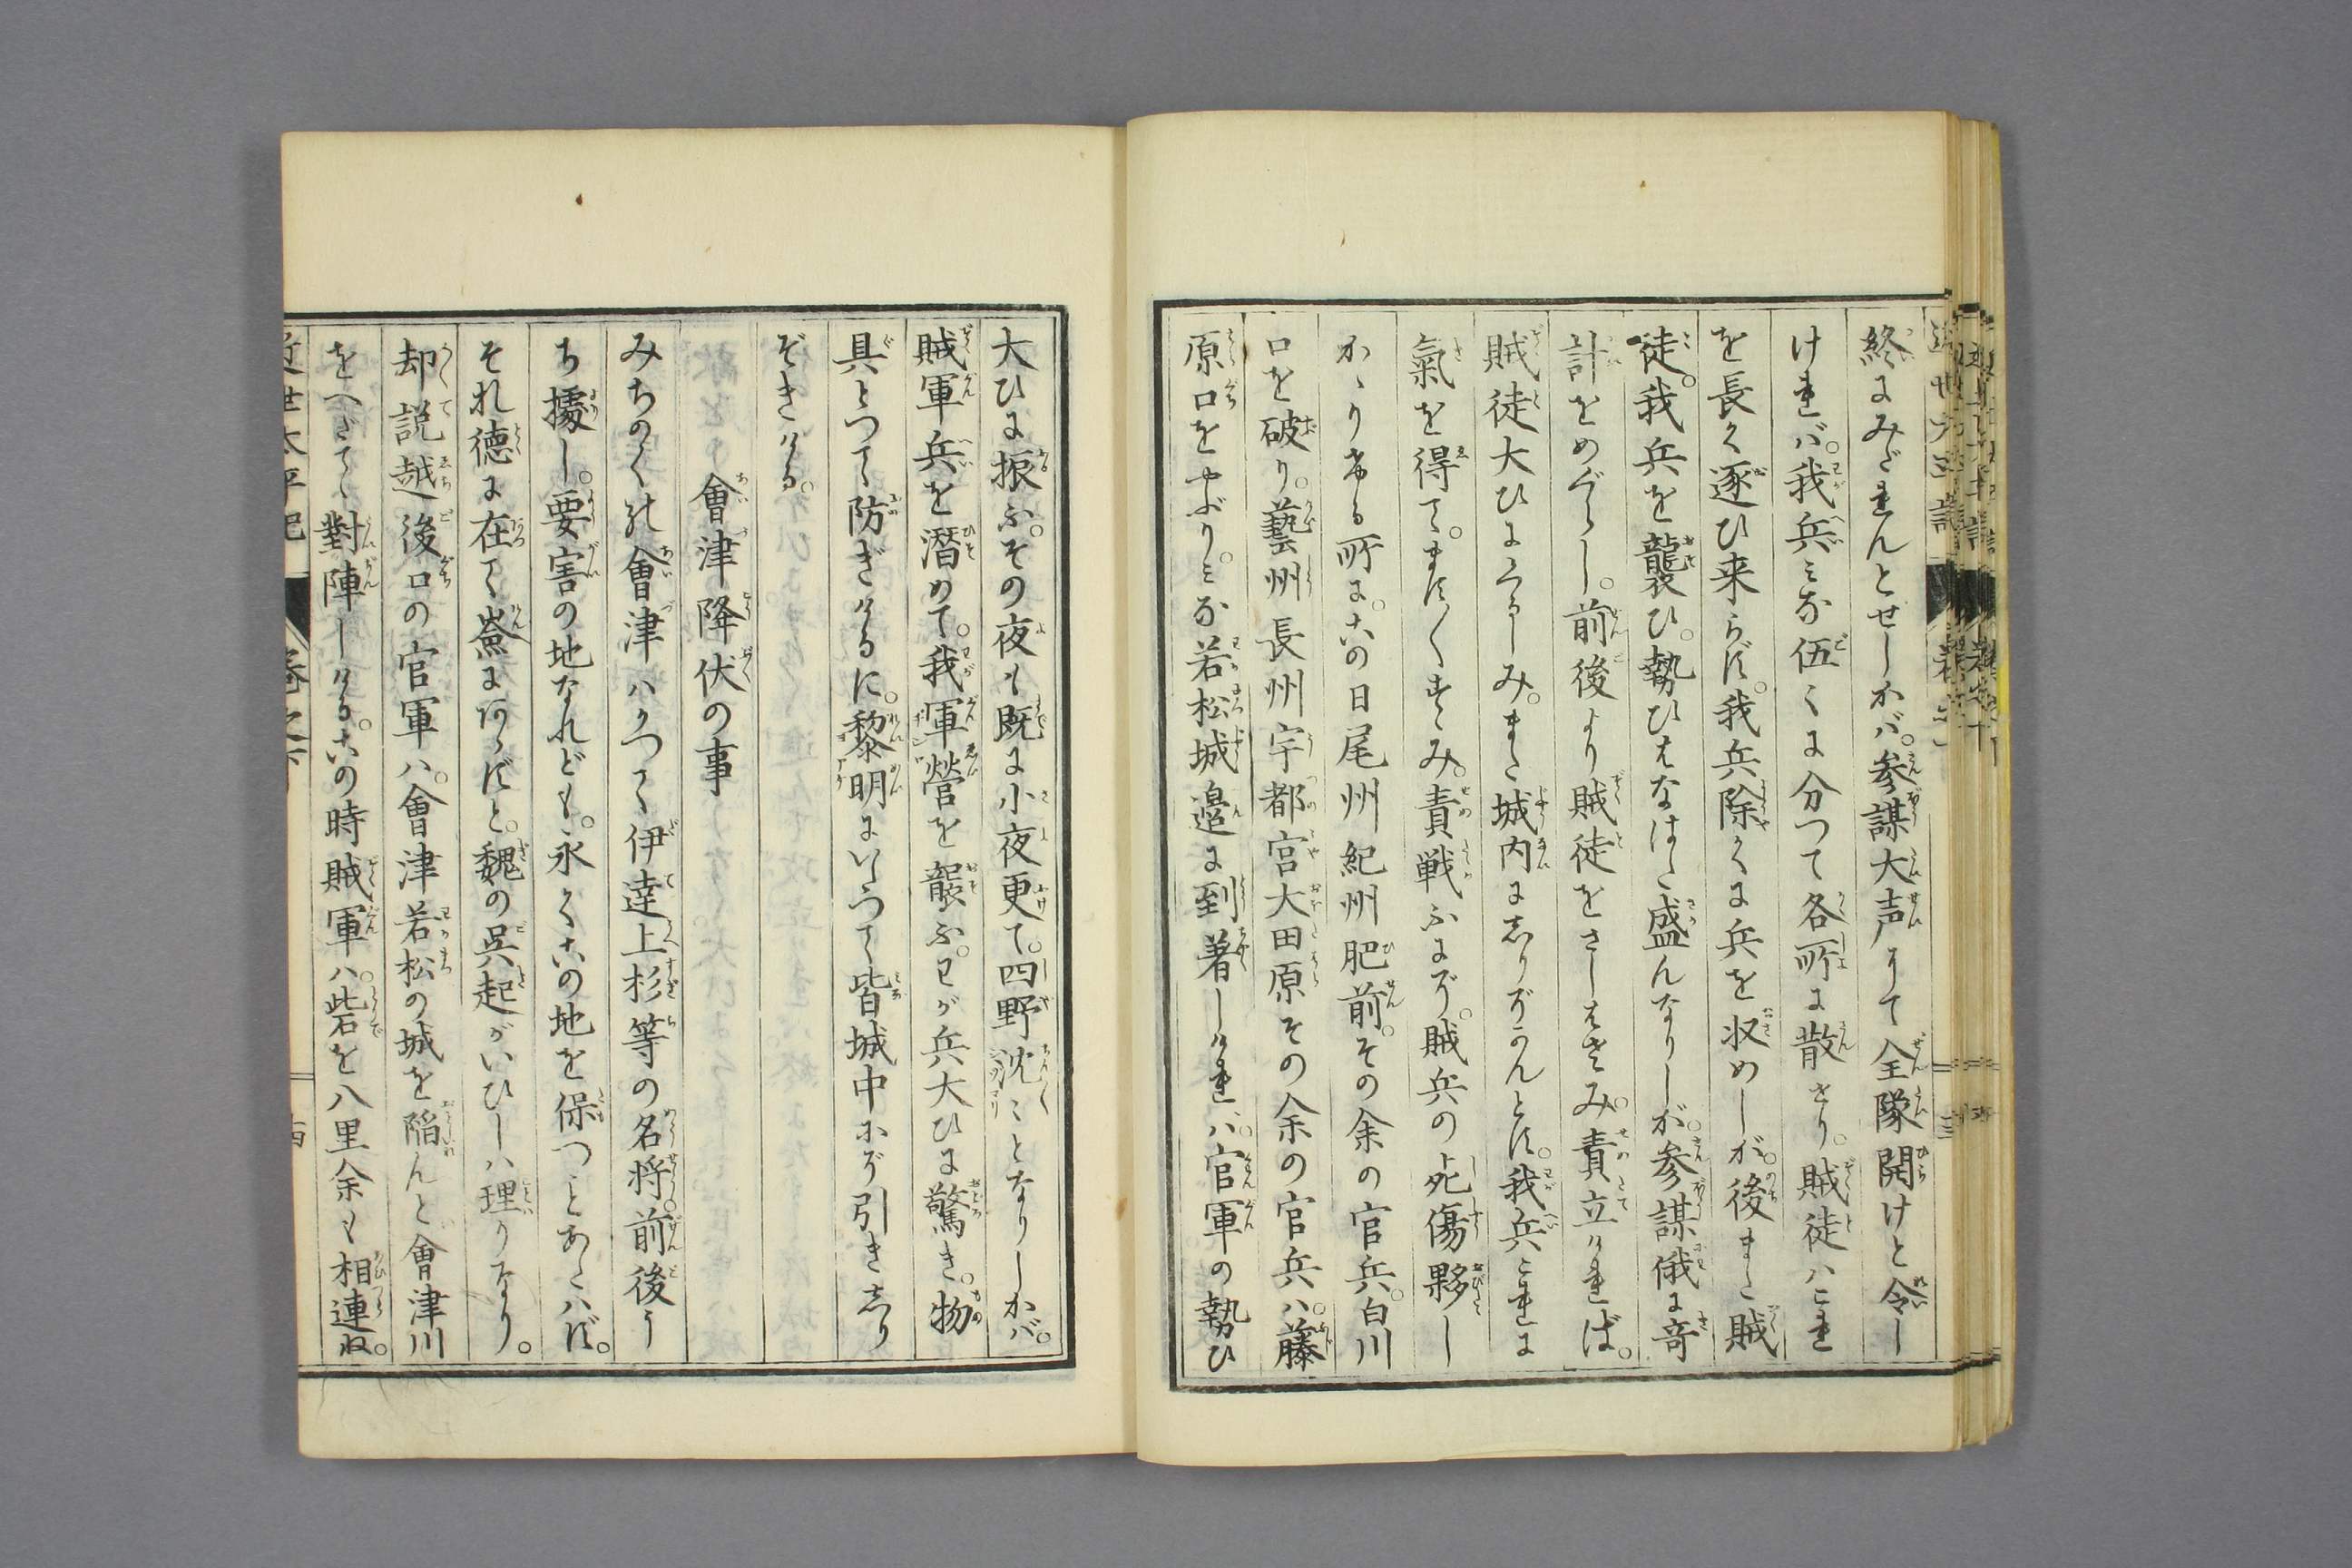 終にみだれんとせしかバ。参謀大声にて全隊開けと令し
けれバ。我兵ミな伍〻に分つて各所に散せり。賊徒ハこれ
を長く逐ひ来らず。我兵除かに兵を収めしが。後また賊
徒。我兵を襲ひ。勢ひはなはだ盛んなりしが。参謀俄に奇
計をめぐらし。前後より賊徒をさしはさみ。責立ければ。
賊徒大ひにくるしみ。また城内にしりぞかんとす。我兵これに
氣を得て。ます〱すゝみ。責戦ふにぞ。賊兵の死傷夥し
かゝりける所に。この日尾州紀州肥前。その余の官兵。白川
口を破り。藝州長州宇都宮大田原その余の官兵ハ。藤
原口をやぶり。ミな若松城邉に到着しけれバ。官軍の勢ひ
大ひに振ふ。その夜も既に小夜更て。四野沈〻となりしかバ。
賊軍兵を潛めて。我軍營を襲ふ。わが兵大ひに驚き。物
具とつて防ぎけるに。黎明にいたつて皆城中にぞ引きしり
ぞきける。
會津降伏の事
みちのくの會津ハかつて伊達上杉等の名将。前後う
ち據し。要害の地なれども。永くこの地を保つことあたハず。
それ德に在て嶮にあらずと。魏の呉起がいひしハ理りなり。
却て説越後口の官軍ハ。會津若松の城を陥んと會津川
をへだてゝ對陣しける。この時賊軍ハ。砦を八里余も相連ね。
近世太平記
巻之下